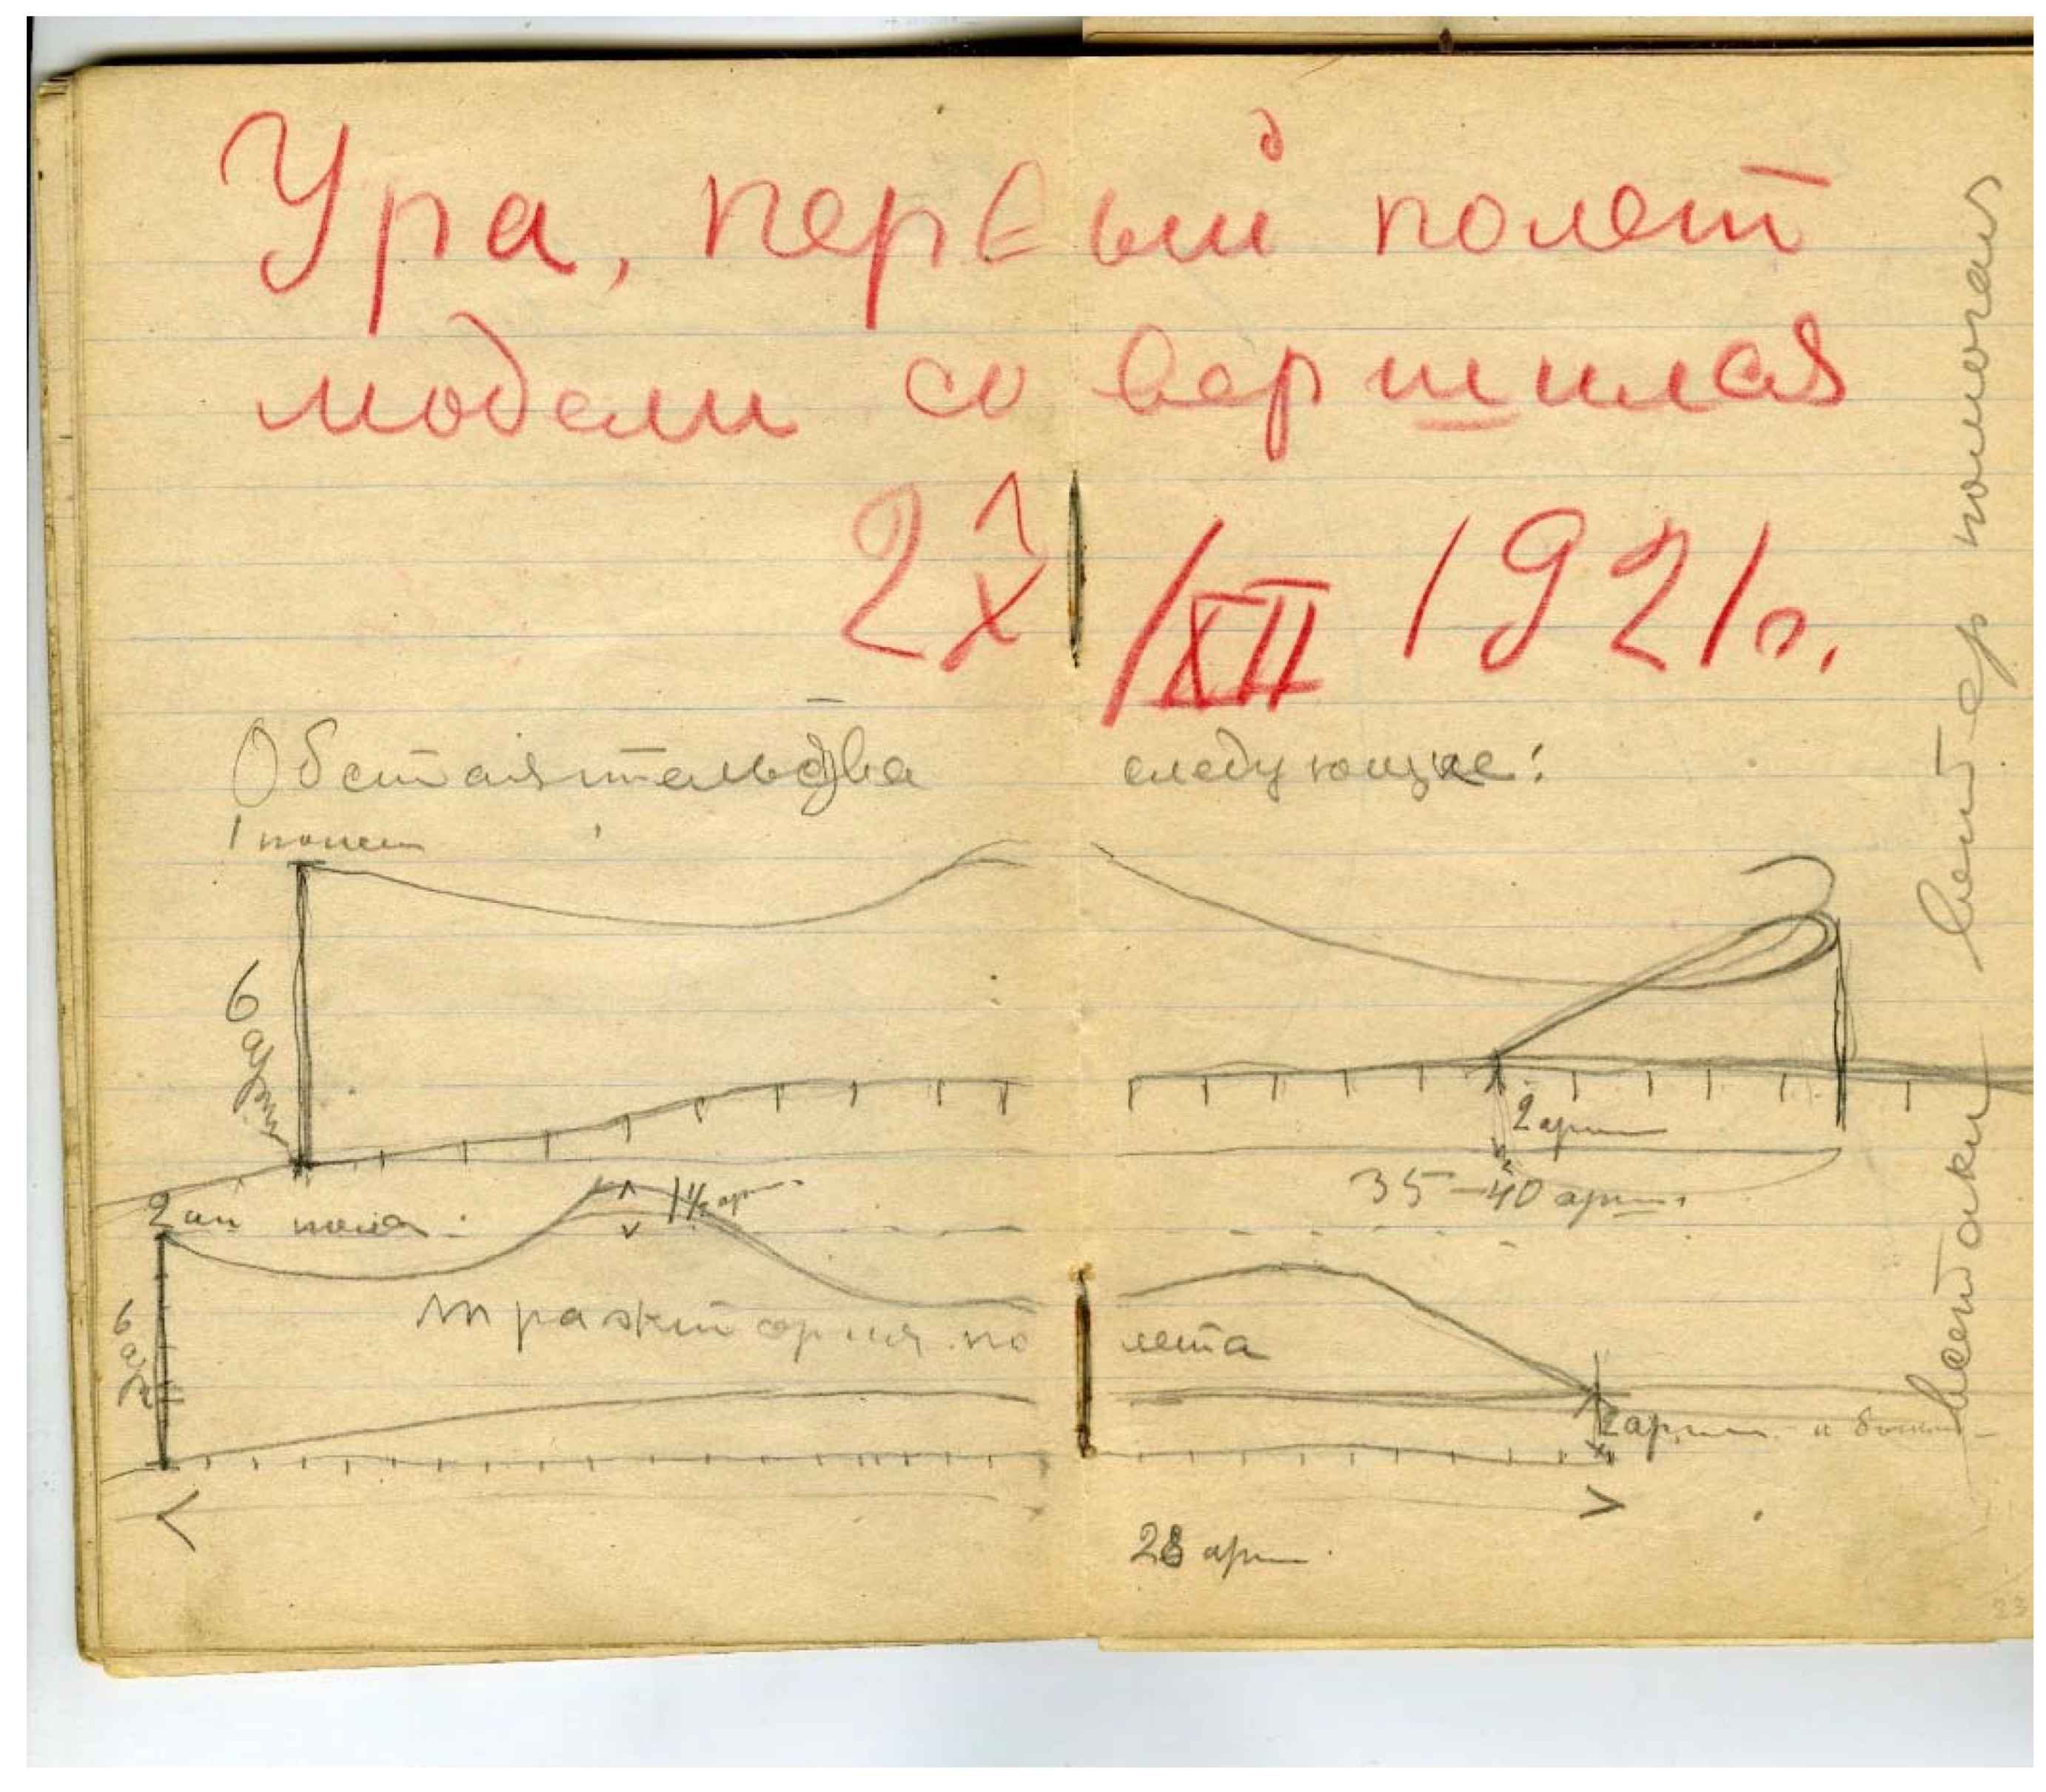 Ура, первый полет
модели совершился
2X /XII 1921г.
Обстаятельства следующие:
1 полет
6 арш
2 арш
35-40 арш.
2ой поле
1½ арш.
6 ар
тражктория полета
2 арш. и больше
28 арш.
всетаки ветер помогал
23